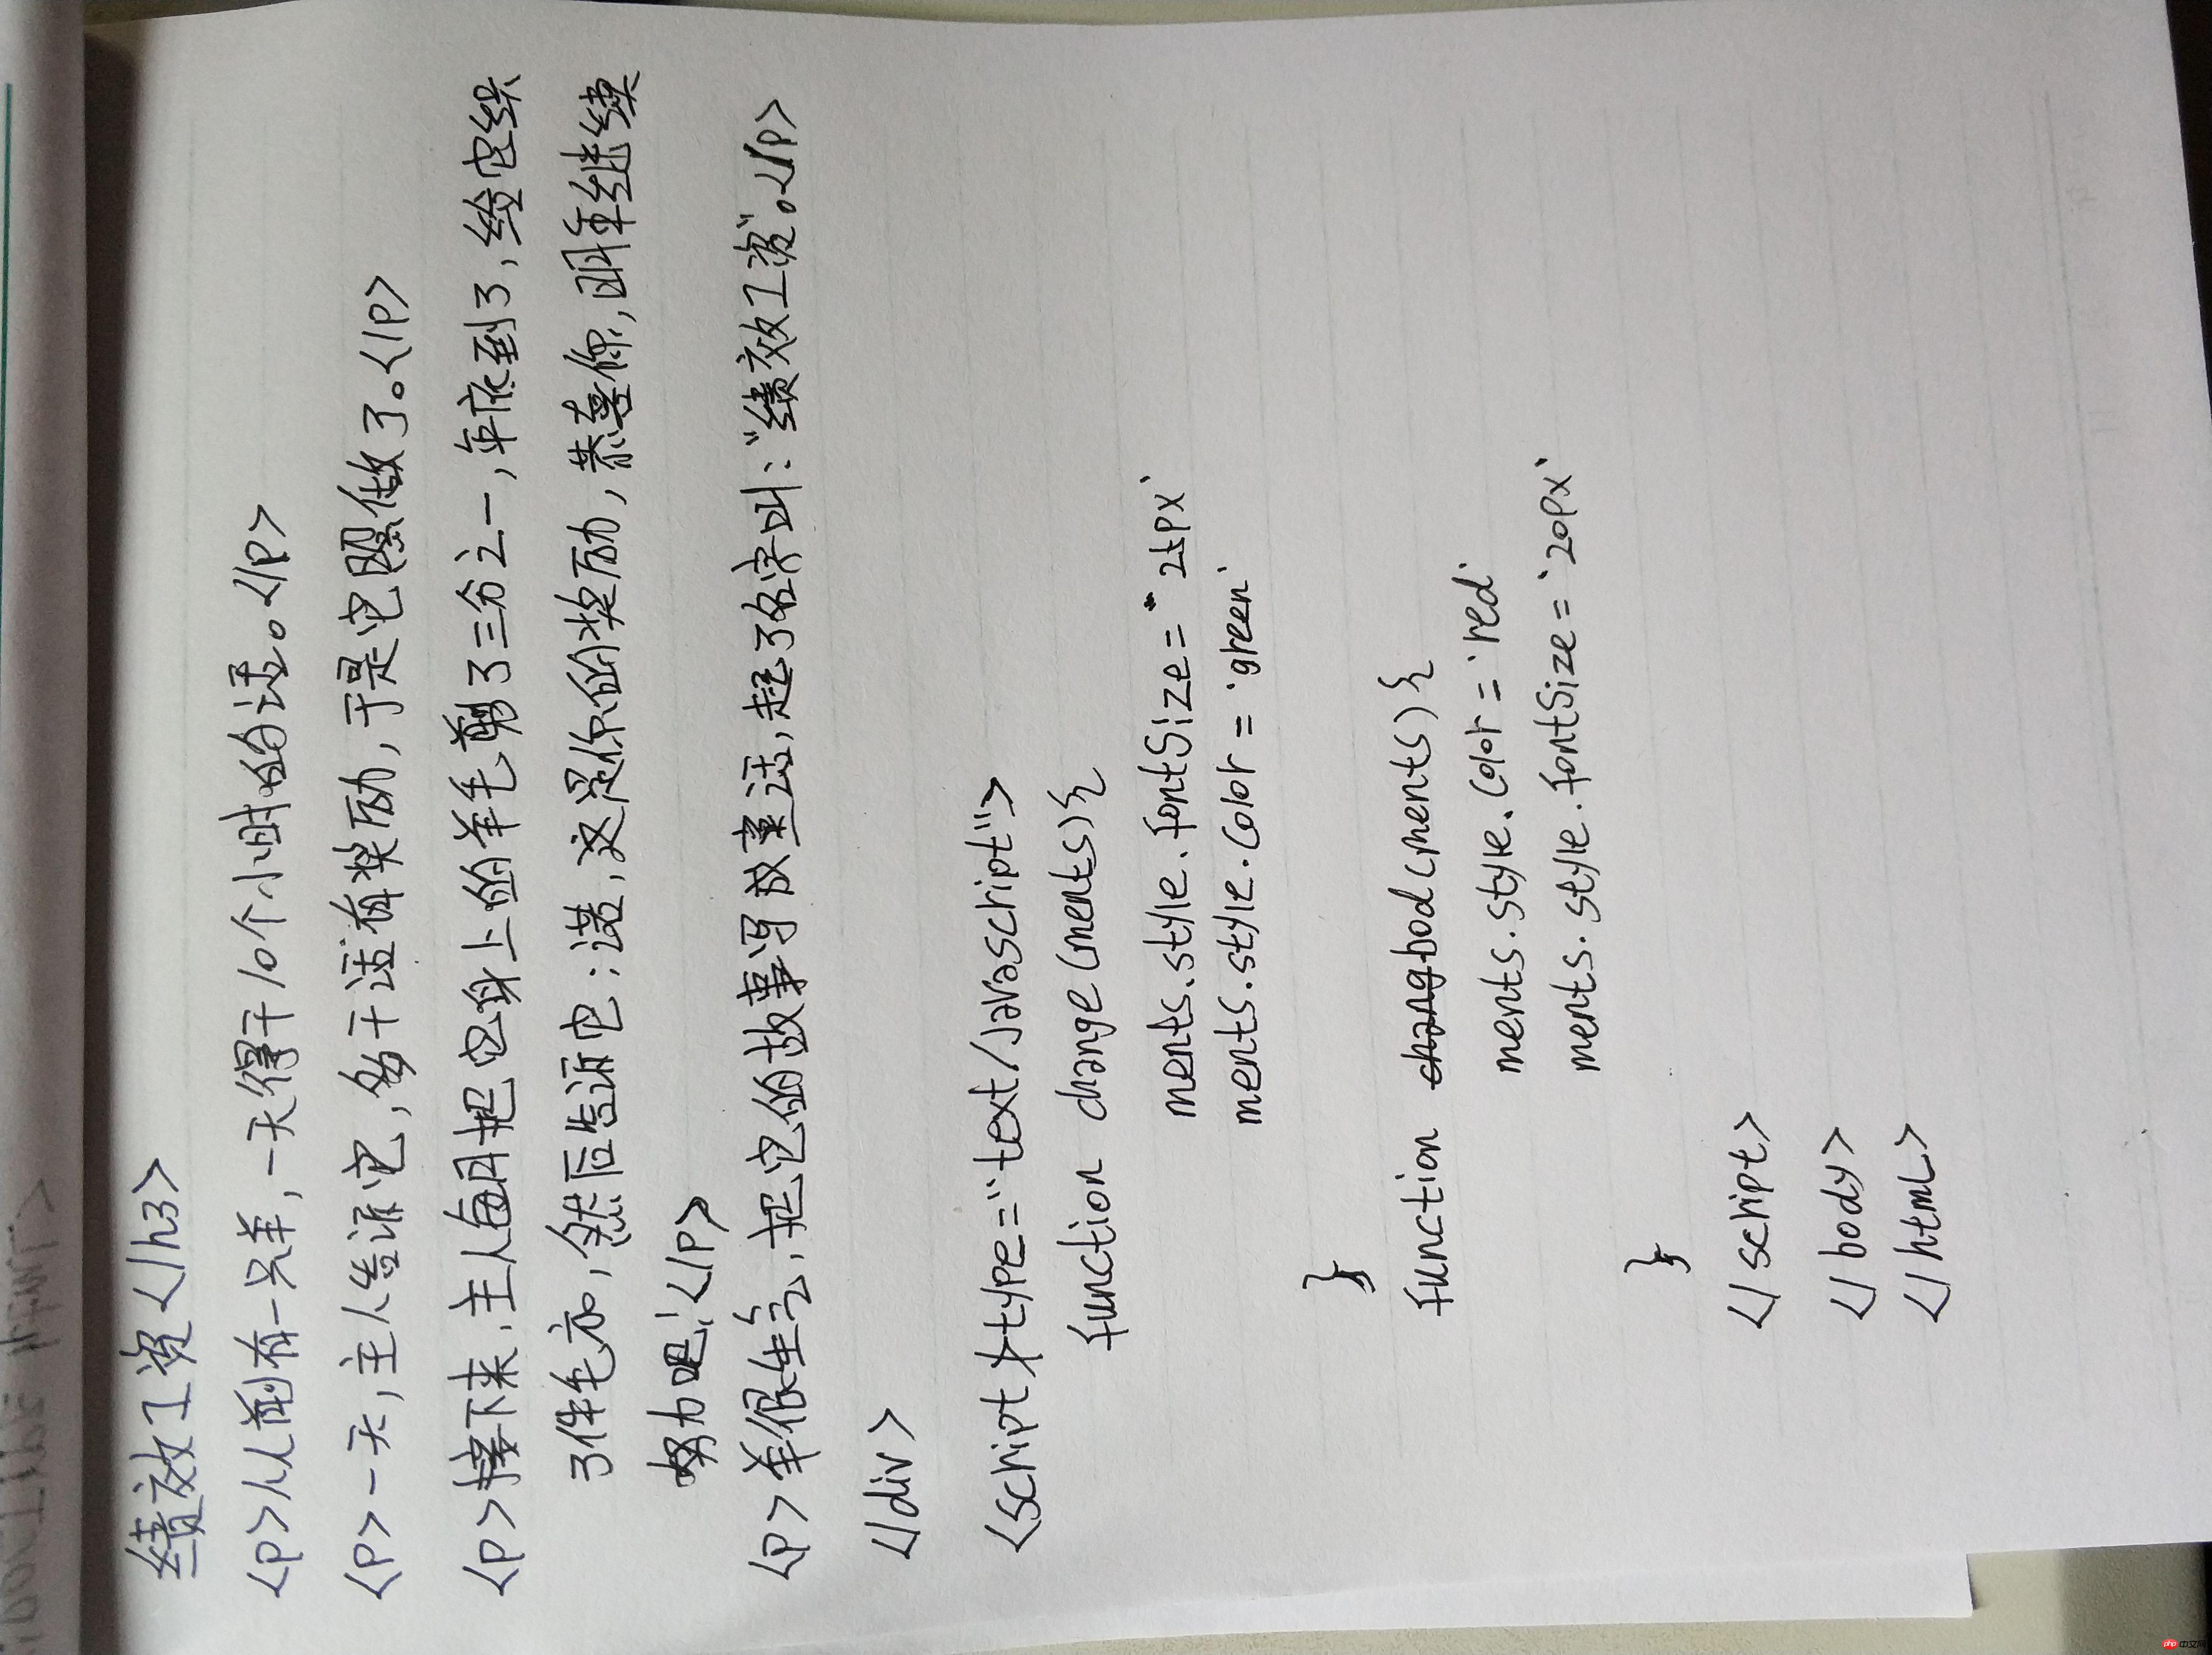 绩效工资</h3>
<p>从前有一只羊,一天得干10个小时的活。</p>
<p>一天,主人告诉它,多干活有奖励,于是它照做了。</p>
<p>接下来,主人每月把它身上的羊毛剪了三分之一,年底到了,给它织
了件毛衣,然后告诉它:诺,这是你的奖励,恭喜你,明年继续
努力吧!</p>
<p>羊很生气,把它的故事写成童话,起了名字叫:"绩效工资"。</p>
</div>
<script type="text/javascript">
function change(ments){
ments.style.fontSize='25px'
ments.style.color='green'
}
function bod(ments){
ments.style.color='red'
ments.style.fontSize='20px'
}
</script>
</body>
</html>
php 中文网